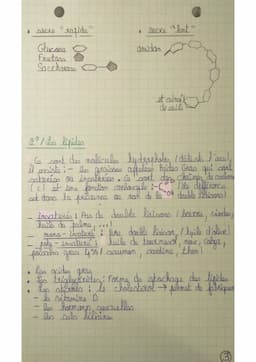 • sucre "rapide"
• sucre "lent"
Glucose
Fructose
Saccharose
amidon
et ainsi de suite
2°/ Les lipides
Ce sont des molécules hydrophobes / déteste l'eau,
il existe : - les graisses appelées Acides Gras qui sont
saturées ou insaturées. Ce sont des chaînes de carbone
(C) et une fonction : -C la différence
est dans la présence ou non de double liaisons
- : Pas de double liaisons / beurre, viande,
huile de palme, ...
- mono-insaturé : Une double liaison / huile d'olive
- poly-insaturé : huile de tournesol, noix, colza,
poissons gras / saumon, sardine, thon
• Les acides gras
• Les triglycérides : Forme de stockage des lipides
• Les stérols : le cholestérol → permet de fabriquer
- la vitamine D
- les hormones sexuelles
- les sels biliaires